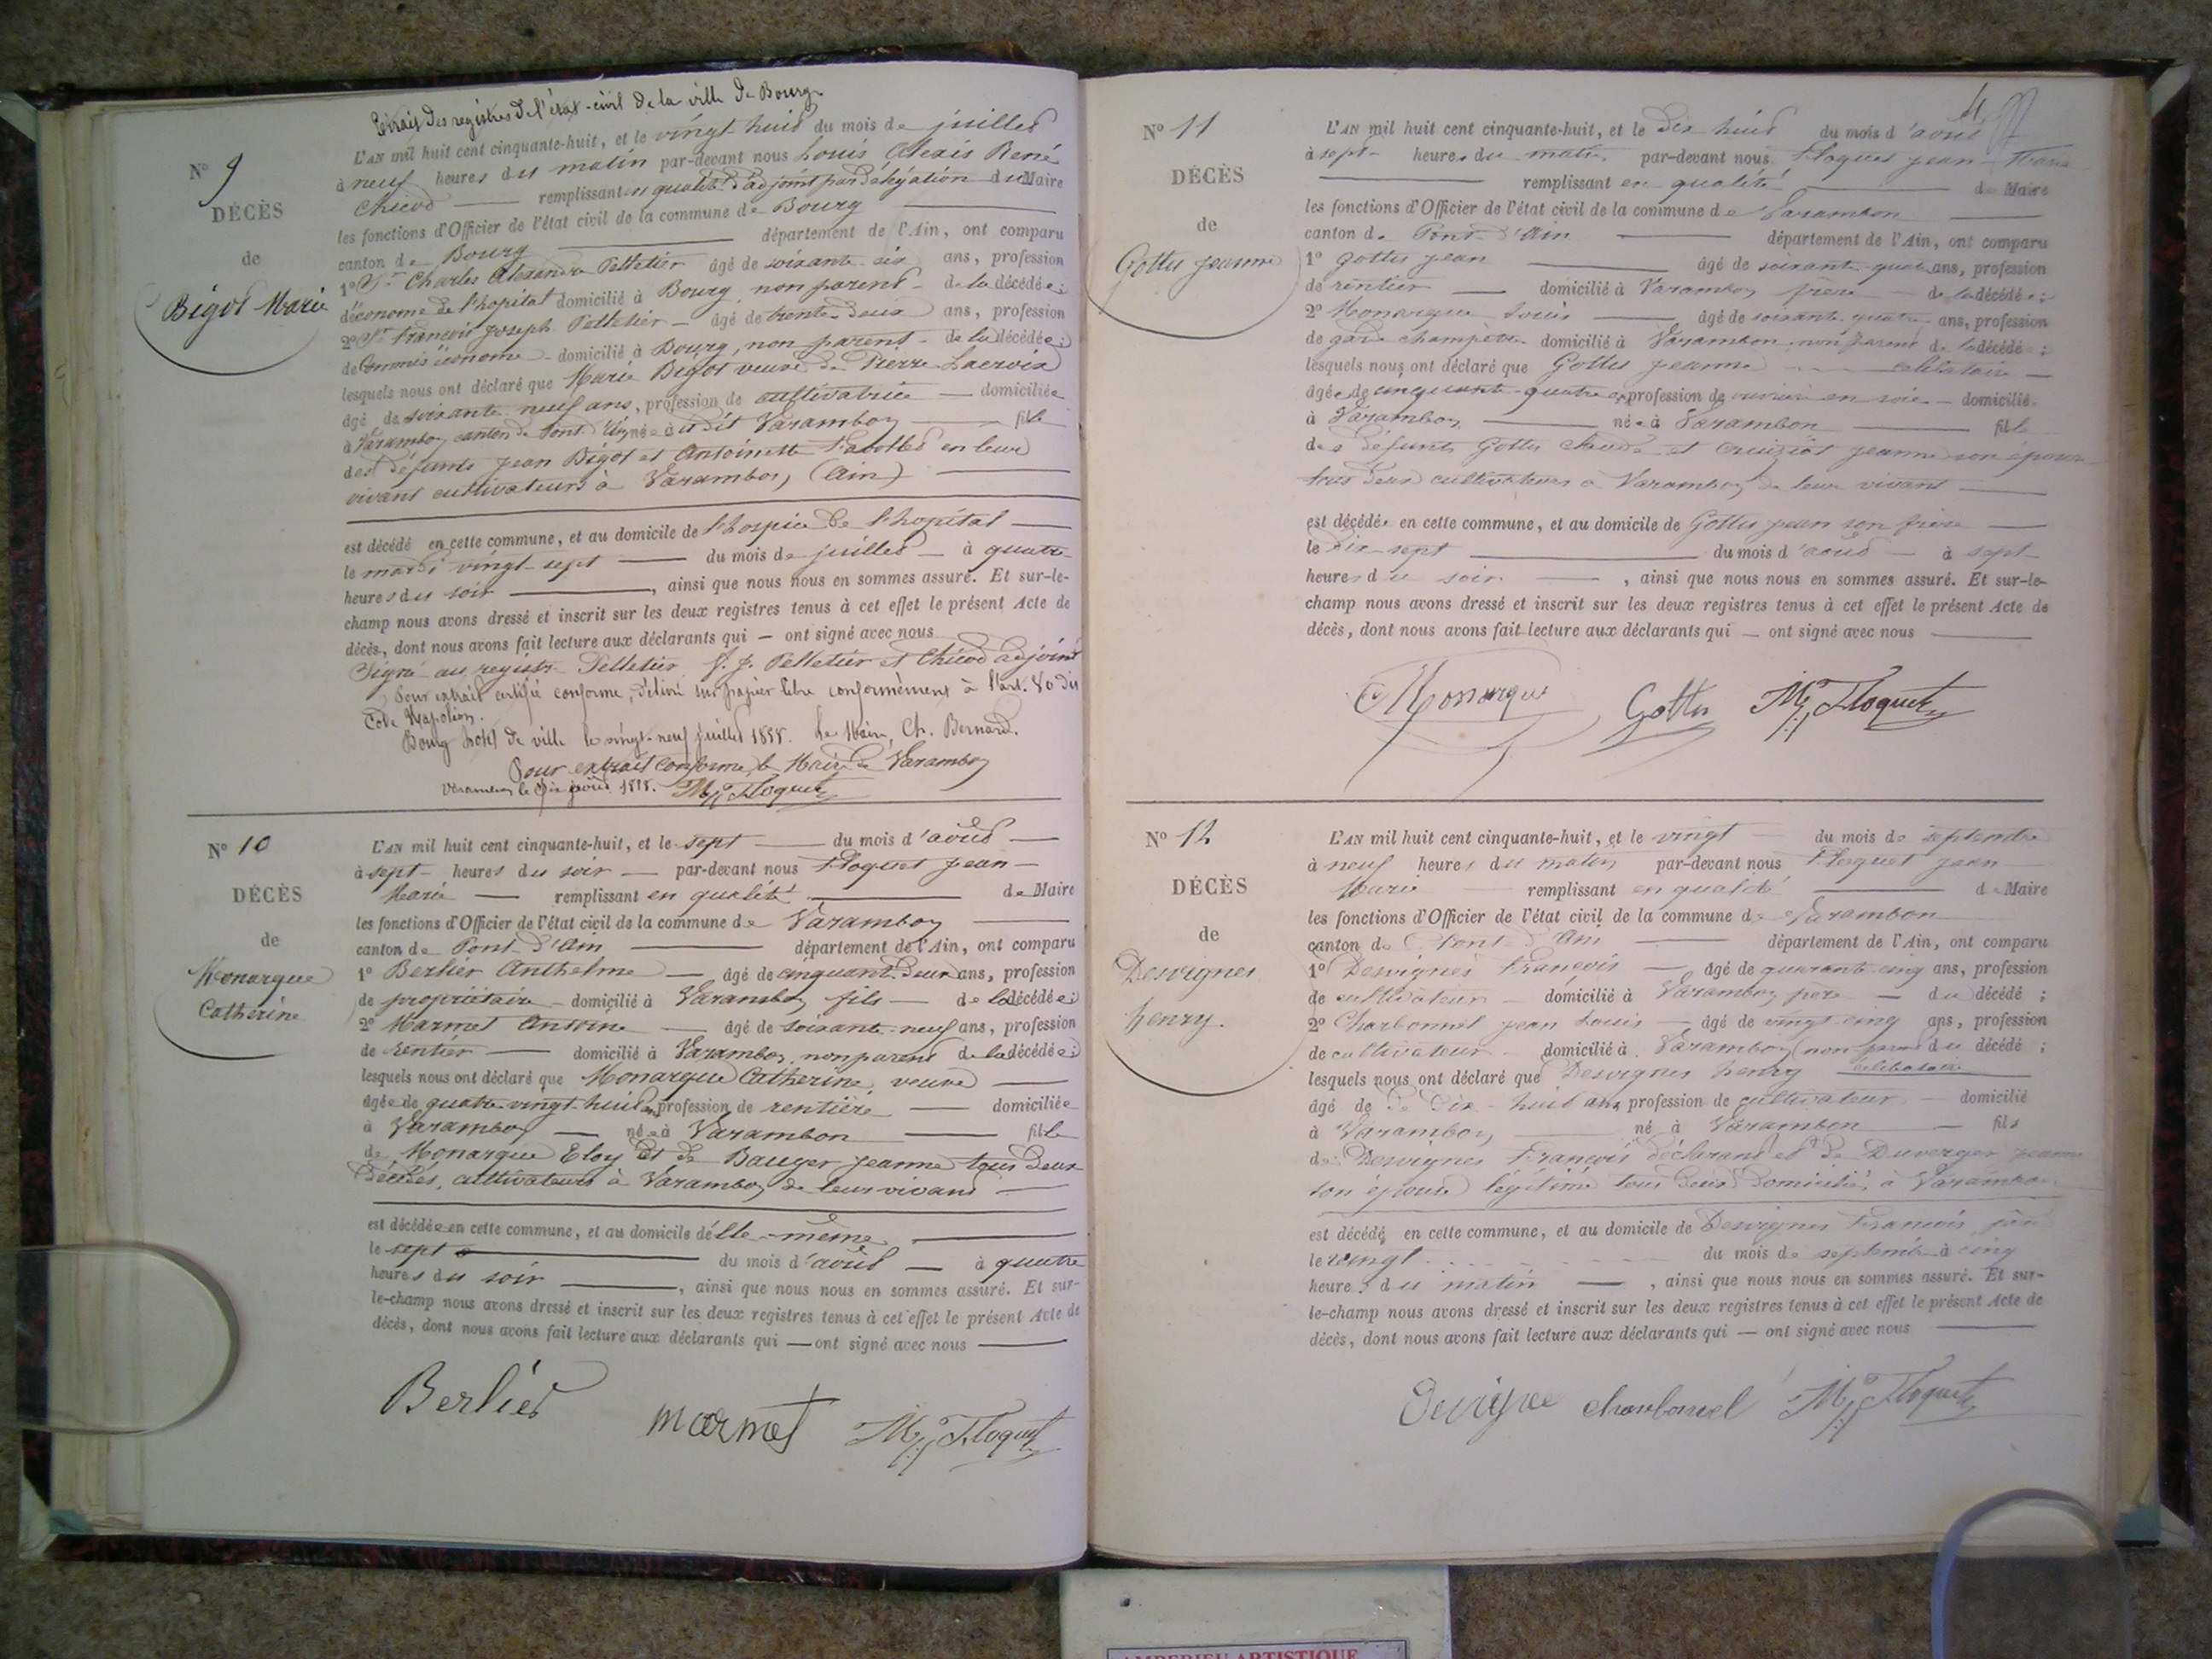 Extrait des registres de l'état-civil de la ville de Bourg.
N° 9
DÉCÈS
de
Bigot Marie
L'AN mil huit cent cinquante-huit, et le vingt huit du mois de juillet
à neuf heures du matin par-devant nous Louis Alexis René
Chicod remplissant en qualité d'adjoint par délégation du Maire
les fonctions d'Officier de l'état civil de la commune de Bourg
canton de Bourg département de l'Ain, ont comparu
1° Sr Charles Alexandre Pelletier âgé de soixante six ans, profession
d'économe de l'hopital domicilié à Bourg, non parent de la décédée;
2° Sr François Joseph Pelletier âgé de trente-deux ans, profession
de Commis économe domicilié à Bourg, non parent de la décédée;
lesquels nous ont déclaré que Marie Bigot veuve de Pierre Lacroix
âgé de soixante neuf ans, profession de cultivatrice domiciliée
à Varambon canton de Pont d'Ain née à dit Varambon fille
des défunts Jean Bigot et Antoinette en leur
vivant cultivateurs à Varambon, (Ain)
est décédé en cette commune, et au domicile de l'hospice de l'hopital
le mardi vingt-sept du mois de juillet à quatre
heures du soir, ainsi que nous nous en sommes assuré. Et sur-le-
champ nous avons dressé et inscrit sur les deux registres tenus à cet effet le présent Acte de
décès, dont nous avons fait lecture aux déclarants qui — ont signé avec nous
Signé au registre Pelletier f. j. Pelletier et Chicod adjoint
Pour extrait certifié conforme, délivré sur papier libre conformément à l'art. 80 du
Code Napoléon.
Bourg hotel de ville le vingt-neuf juillet 1858. Le Maire, Ch. Bernard.
Pour extrait conforme le Maire de Varambon
Varambon le dix août 1858. Floquet
N° 10
DÉCÈS
de
Monarque
Catherine
L'AN mil huit cent cinquante-huit, et le sept du mois d'août
à sept heures du soir par-devant nous Floquet Jean
Marie remplissant en qualité de Maire
les fonctions d'Officier de l'état civil de la commune de Varambon
canton de Pont d'Ain département de l'Ain, ont comparu
1° Berlier Anthelme âgé de cinquante deux ans, profession
de propriétaire domicilié à Varambon fils de la décédée;
2° Marmet Antoine âgé de soixante-neuf ans, profession
de rentier domicilié à Varambon, non parent de la décédée;
lesquels nous ont déclaré que Monarque Catherine veuve
âgée de quatre-vingt-huit ans profession de rentière domiciliée
à Varambon née à Varambon fille
de Monarque Eloy et de Bauger Jeanne tous deux
décédés, cultivateurs à Varambon de leur vivant
est décédée en cette commune, et au domicile d'elle-même
le sept du mois d'août à quatre
heures du soir, ainsi que nous nous en sommes assuré. Et sur-
le-champ nous avons dressé et inscrit sur les deux registres tenus à cet effet le présent Acte de
décès, dont nous avons fait lecture aux déclarants qui — ont signé avec nous
Berlier marmet Floquet
4
N° 11
DÉCÈS
de
Gottu Jeanne
L'AN mil huit cent cinquante-huit, et le dix huit du mois d'août
à sept heures du matin par-devant nous Floquet Jean Marie
remplissant en qualité de Maire
les fonctions d'Officier de l'état civil de la commune de Varambon
canton de Pont d'Ain département de l'Ain, ont comparu
1° Gottu Jean âgé de soixante quatre ans, profession
de rentier domicilié à Varambon frère de la décédée;
2° Monarque Louis âgé de soixante quatre ans, profession
de garde champêtre domicilié à Varambon non parent de la décédée;
lesquels nous ont déclaré que Gottu Jeanne célibataire
âgée de cinquante-quatre ans profession de ouvrière en soie domiciliée
à Varambon née à Varambon fille
des défunts Gottu Claude et Jeanne son épouse
tous deux cultivateurs à Varambon de leur vivant
est décédée en cette commune, et au domicile de Gottu Jean son frère
le dix-sept du mois d'août à sept
heures du soir, ainsi que nous nous en sommes assuré. Et sur-le-
champ nous avons dressé et inscrit sur les deux registres tenus à cet effet le présent Acte de
décès, dont nous avons fait lecture aux déclarants qui — ont signé avec nous
Monarque Gottu Floquet
N° 12
DÉCÈS
de
Desvignes
henry.
L'AN mil huit cent cinquante-huit, et le vingt du mois de septembre
à neuf heures du matin par-devant nous Floquet Jean
Marie remplissant en qualité de Maire
les fonctions d'Officier de l'état civil de la commune de Varambon
canton de Pont d'Ain département de l'Ain, ont comparu
1° Desvignes François âgé de quarante-cinq ans, profession
de cultivateur domicilié à Varambon père du décédé;
2° Charbonnel Jean Louis âgé de vingt cinq ans, profession
de cultivateur domicilié à Varambon non parent du décédé;
lesquels nous ont déclaré que Desvignes henry célibataire
âgé de dix-huit ans profession de cultivateur domicilié
à Varambon né à Varambon fils
de Desvignes François déclarant et de Duverger Jeanne
son épouse légitime tous deux domiciliés à Varambon
est décédé en cette commune, et au domicile de Desvignes François père
le vingt du mois de septembre à cinq
heures du matin, ainsi que nous nous en sommes assuré. Et sur-
le-champ nous avons dressé et inscrit sur les deux registres tenus à cet effet le présent Acte de
décès, dont nous avons fait lecture aux déclarants qui — ont signé avec nous
Devigne charbonnel Floquet
AMBERIEU ARTISTIQUE